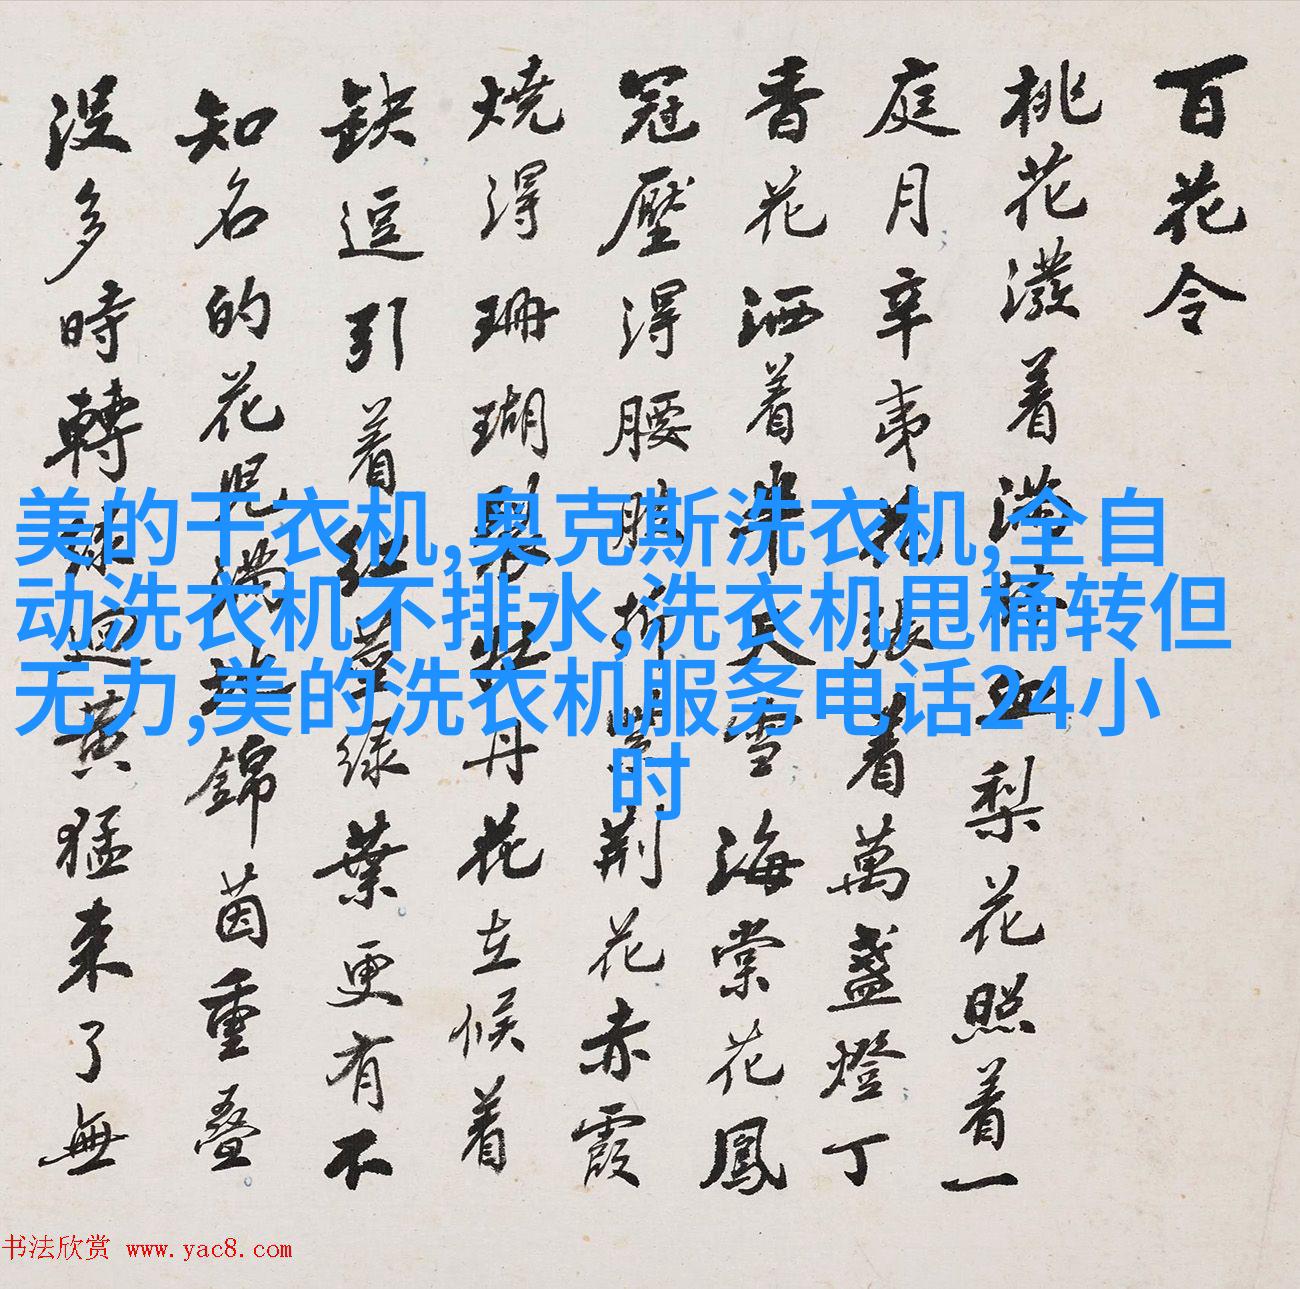 百花令
桃花潑着滿血梨花照着一
庭月辛夷花張着萬盞燈丁
香花洒着半天雪海棠花鳳
冠壓得腰肢折紫荆花赤霞
燒得珊瑚裂牡丹花立候着
缺逗引着紅綠葉更有不
知名的花兒滿地錦茵重叠
沒多時轉綠迴黃猛來了無
美的干衣机,奥克斯洗衣机,全自
动洗衣机不排水,洗衣机甩桶转但
无力,美的洗衣机服务电话24小
时
书法欣赏 www.yac8.com